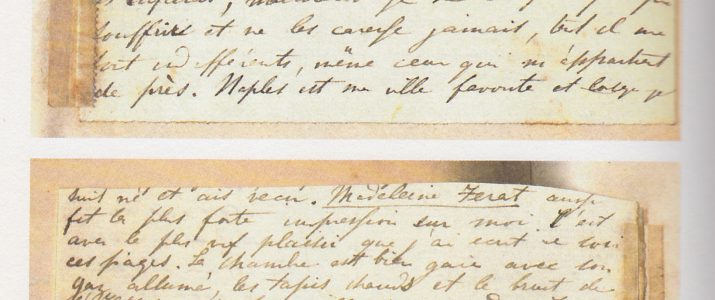 souffrir et ne les caresse jamais, tout il me
sont indifférents, même ceux qui m'appartient
de près. Naples est ma ville favorite et lorsque je
suis né et ais vecu. Madeleine Ferat aussi
fit la plus forte impression sur moi. C'est
avec le plus vif plaisir que j'ai ecrit ce soir
ces pages. La chambre est bien gaie avec son
gaz allumé, les tapis chauds et le bruit de